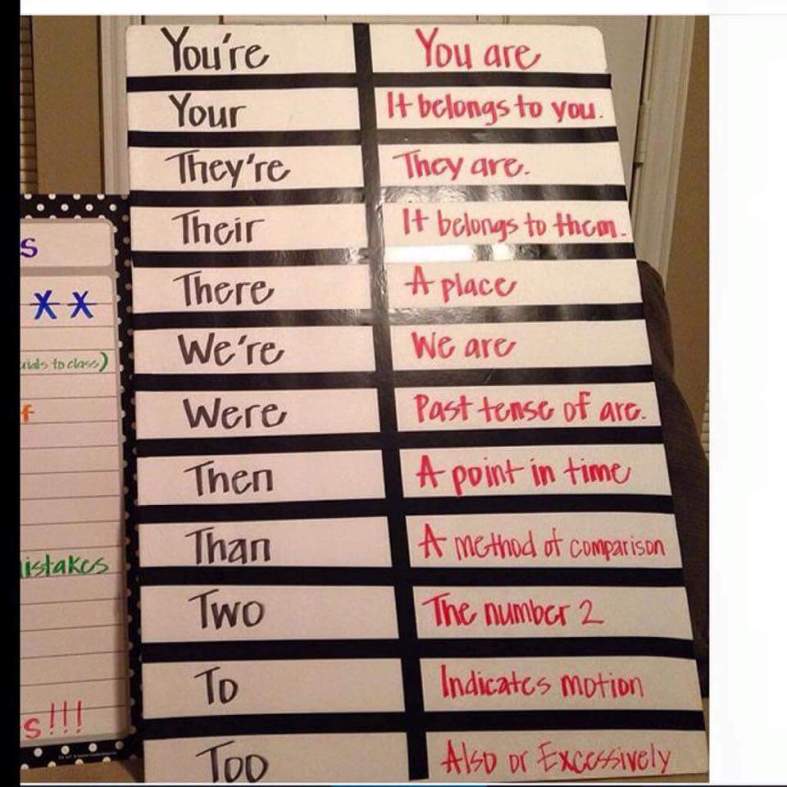 You're You are
Your It belongs to you.
They're They are.
Their It belongs to them.
There A place
We're We are
Were Past tense of are.
Then A point in time
Than A method of comparison
Two The number 2
To Indicates motion
Too Also or Excessively
s
**
to class)
f
istakes
s!!!